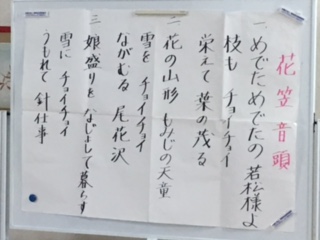 花笠音頭
一、めでためでたの若松様よ
枝も チョイチョイ
栄えて 葉の茂る
二 花の山形 もみじの天童
雪を チョイチョイ
ながむる 尾花沢
三 娘盛りを なじょして暮らす
雪に チョイチョイ
うもれて 針仕事